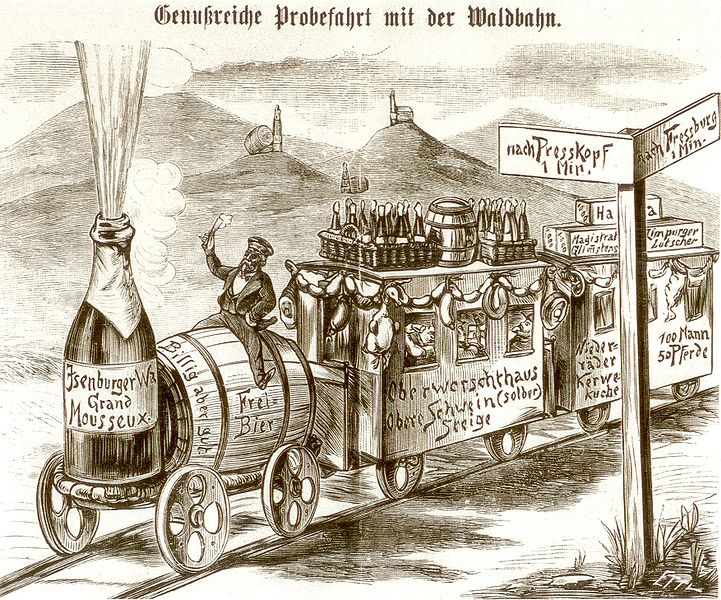 Genußreiche Probefahrt mit der Waldbahn.
nach Presskopf
1 Min.
nach Fressburg
1 Min.
Ha a
Magistrat
Limpurger
Lutscher
Isenburger Wa
Grand
Mousseux
Billig aber gut
Frei-
Bier
Oberworschthaus
Obere Schwein (solber)
Seeige
Nieder-
räder
Kerwe
kuche
100 Mann
50 Pferde